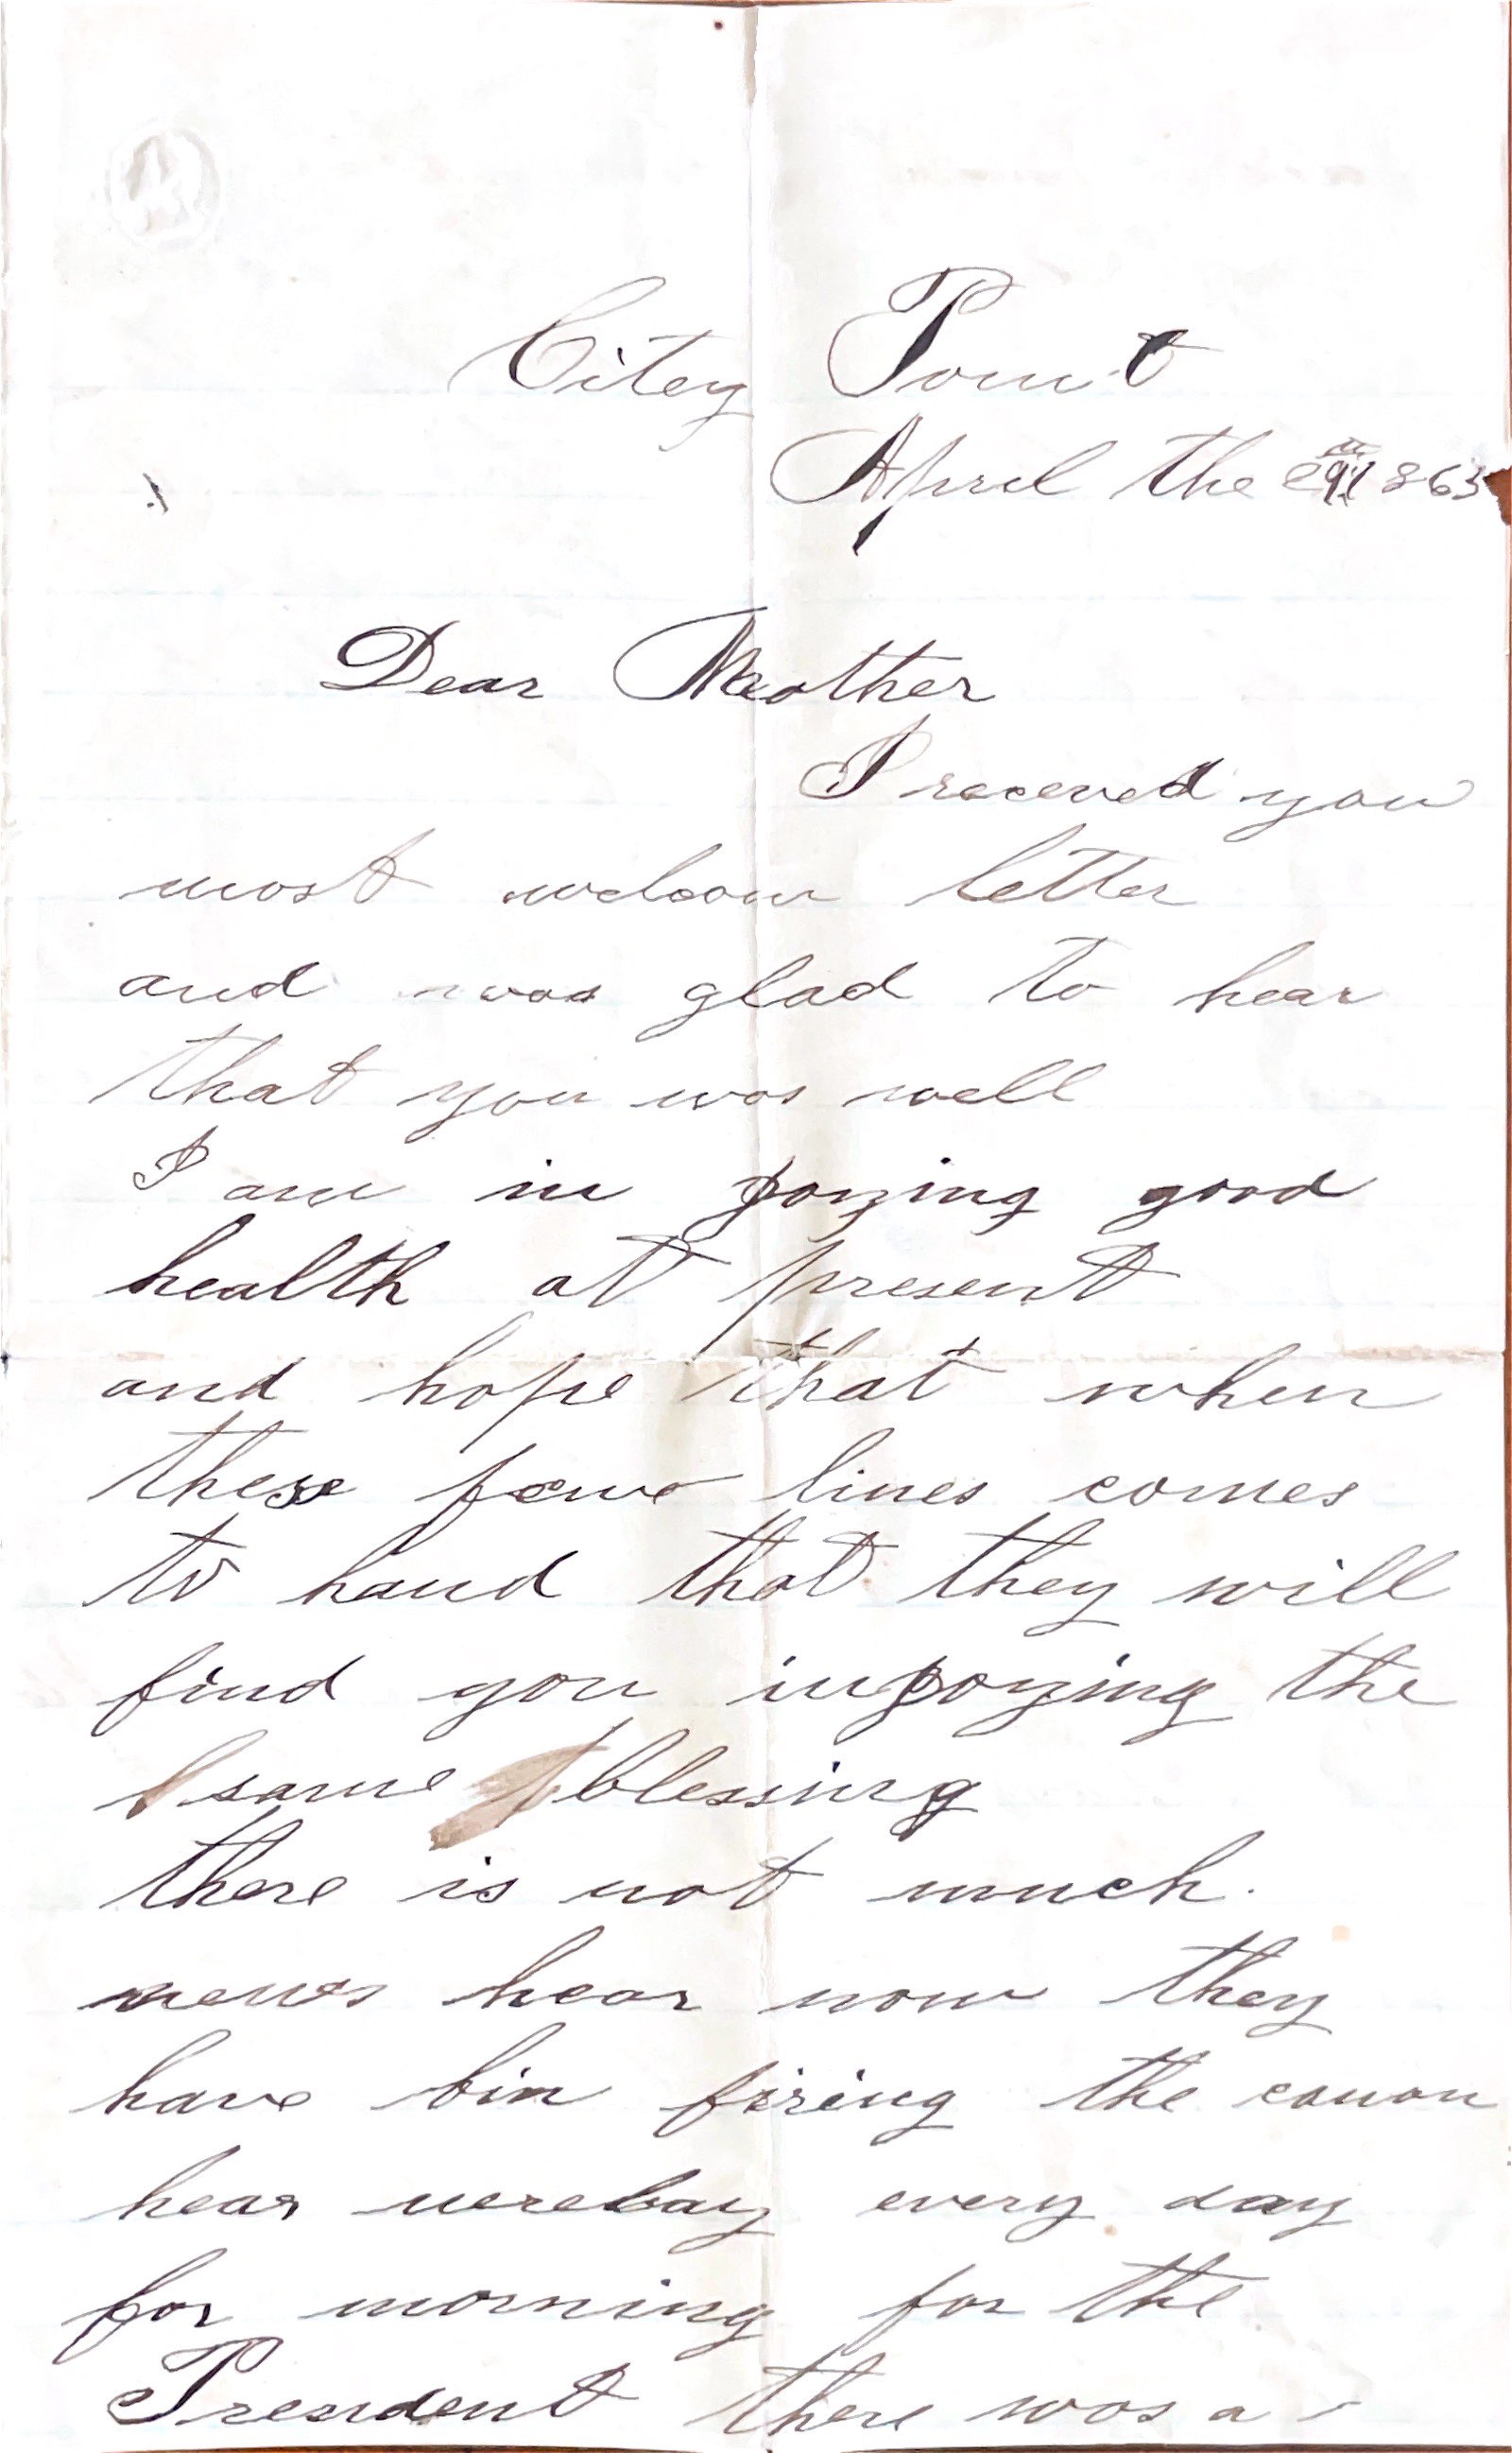 Citey Point
April the 29 1863
Dear Mother
I receved you
most welcom letter
and was glad to hear
that you was well
I am in joyzing good
health at present
and hope that when
these fewe lines comes
to hand that they will
find you injoyzing the
same blessing
there is not much
news hear now they
have bin firing the canon
hear nerebay every day
for morning for the
President there was a